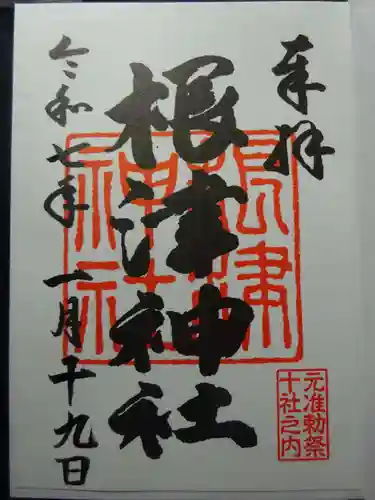 奉拝
根津神社
令和七年一月十九日
根津神社
元准勅祭
十社之内